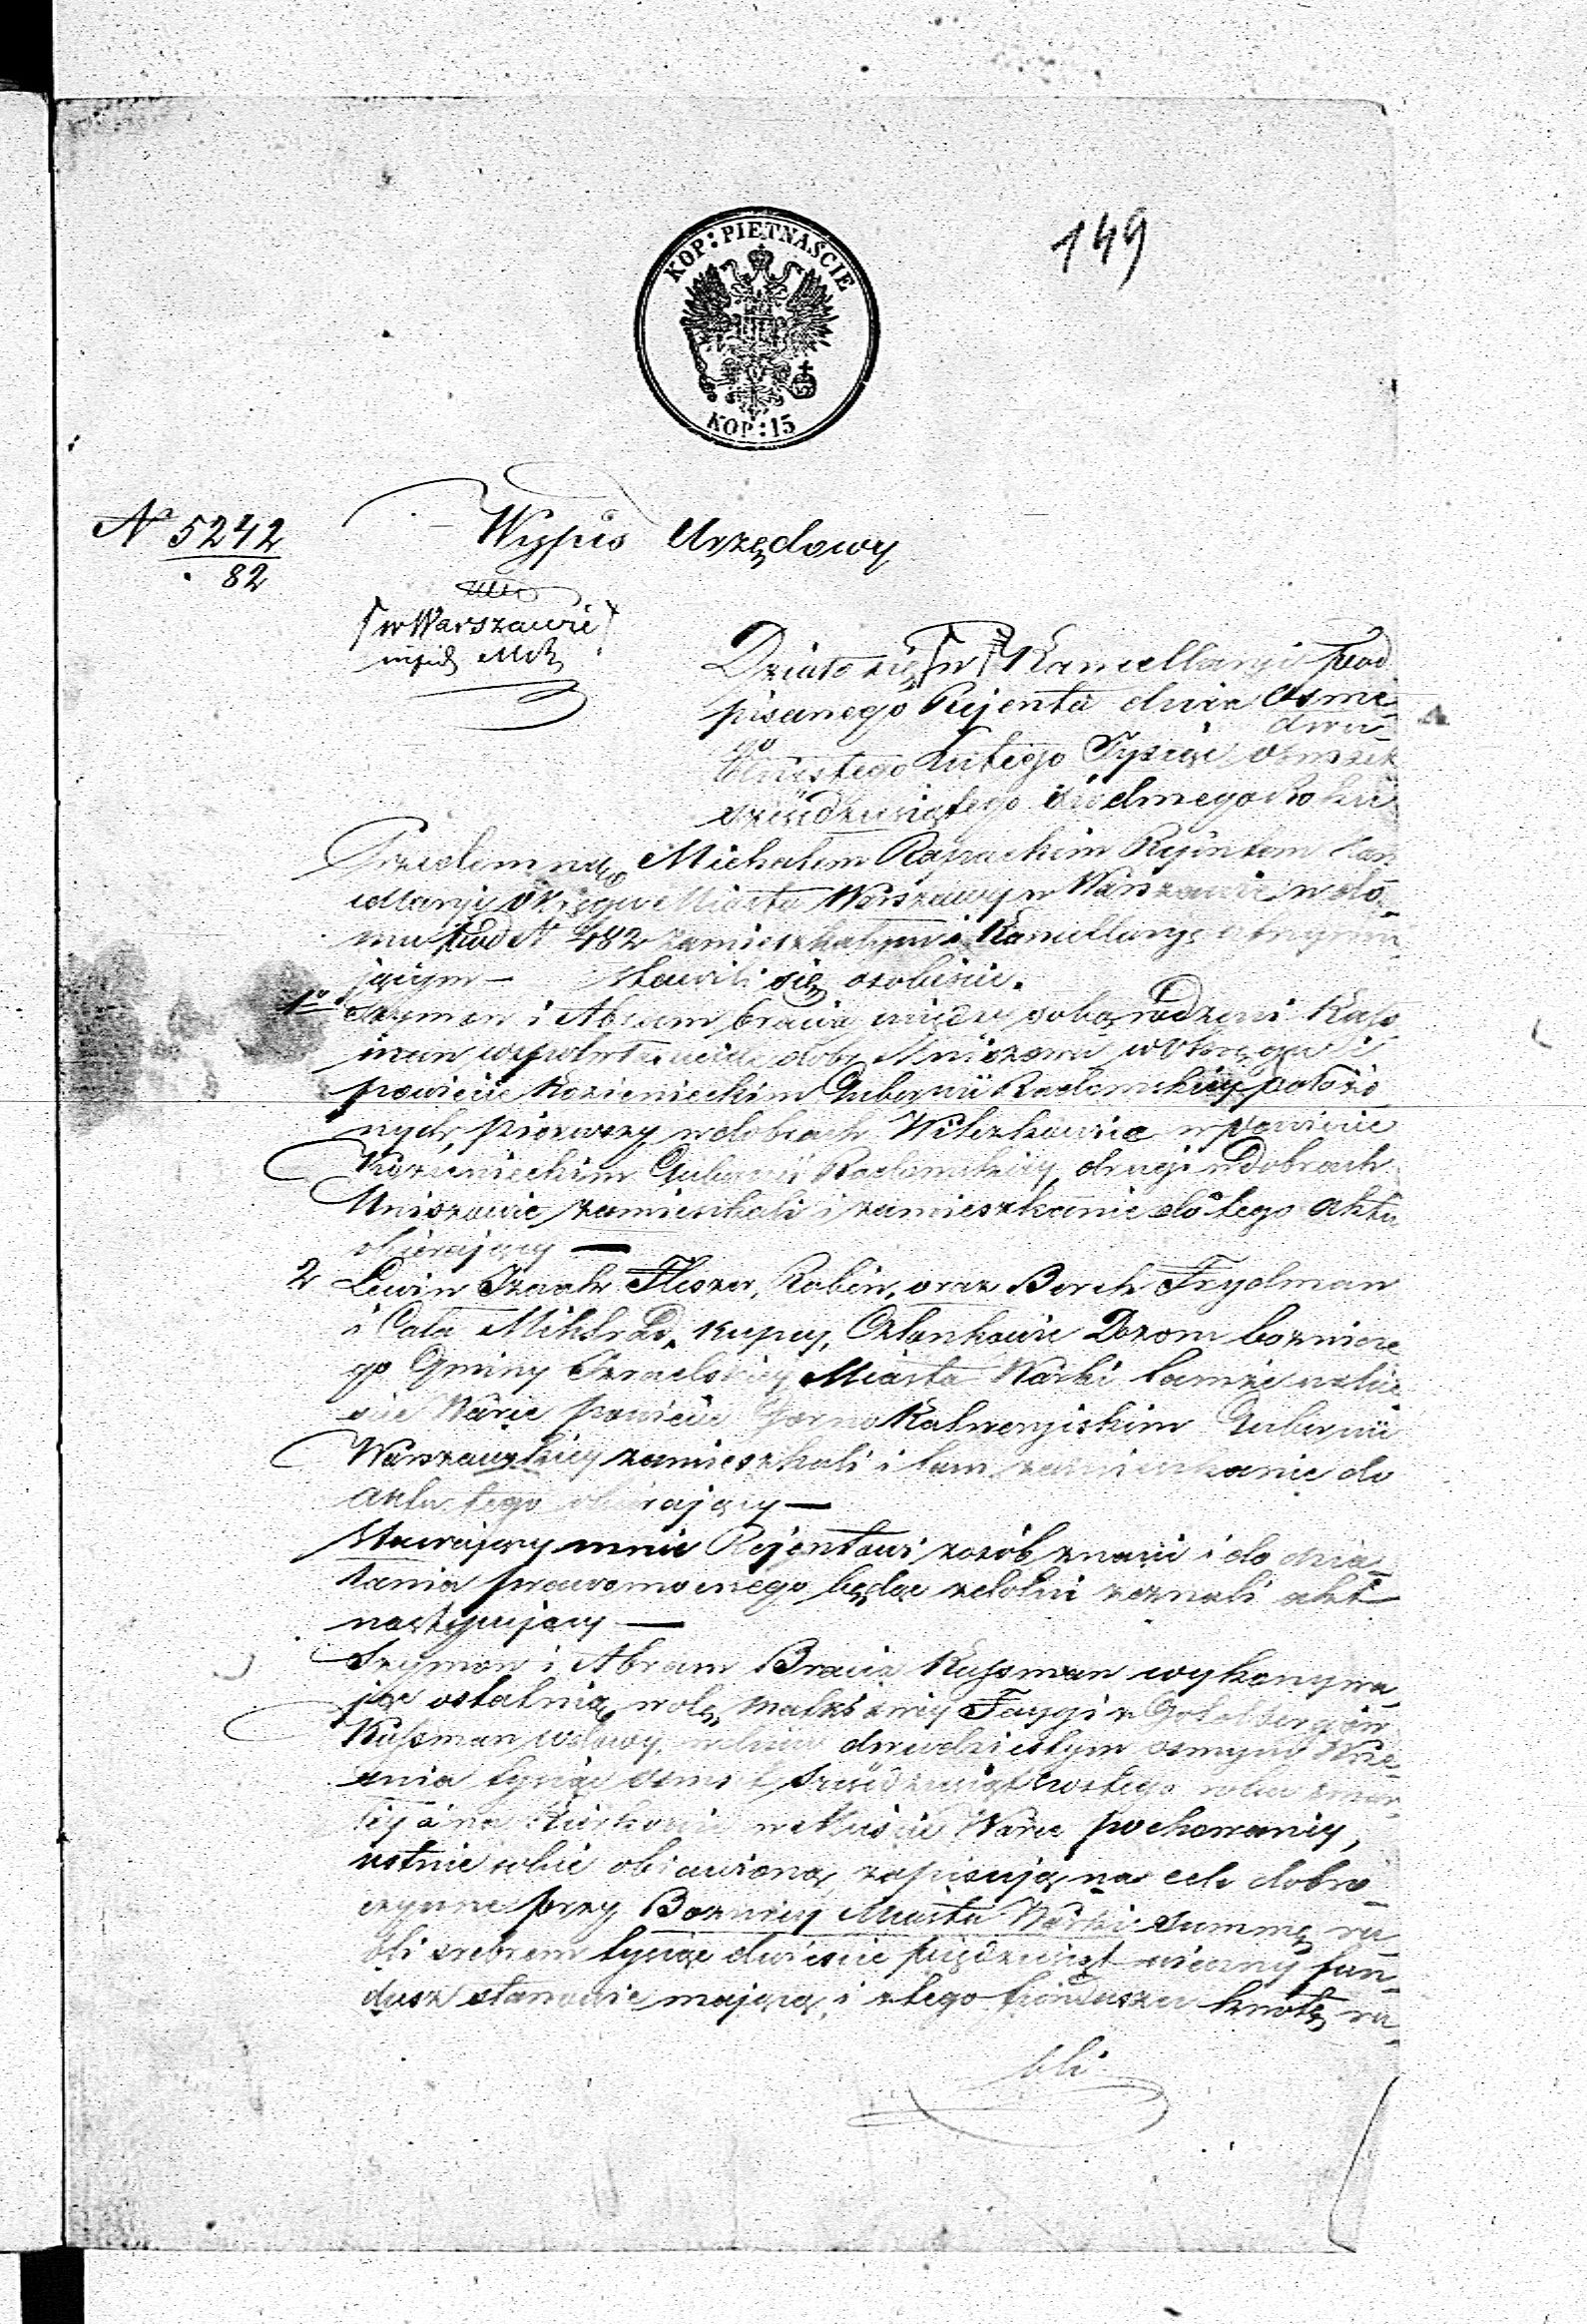 149
KOP: PIETNAŚCIE
KOP: 15
N 5242
82
Wypis Urzędowy
w Warszawie
Działo się w Kancellaryi pod
pisanego Rejenta dnia Osme
go dwu
dziestego Lutego Tysiąc ośmset
sześćdziesiątego siódmego Roku
Przedemną Michałem Rapackim Rejentem Kan
cellaryi Okręgu Miasta Warszawy w Warszawie w do
mu pod N 482 zamieszkałym i Kancellaryę utrzymu
jącym — stawili się osobiście.
1o Szymon i Abram bracia między sobą rodzeni Kuss
man współwłaściciele dóbr Mniszewa w Okręgu i
powiecie Kozienieckim Gubernii Radomskiej położo
nych, pierwszy w dobrach Wilczkowice w powiecie
Kozienieckim Gubernii Radomskiej, drugi w Dobrach
Mniszewie zamieszkali i zamieszkanie do tego aktu
obierający —
2 Lewin Izaak Fliszer, Rabin, oraz Berek Frydman
i Cala Mikhrad, kupcy, Członkowie Dozoru bożnicze
go Gminy Izraelskiej Miasta Warki tamże w mie
ście Warce powiecie Czersko Kalwaryiskim Gubernii
Warszawskiej zamieszkali i tam zamieszkanie do
aktu tego obierający —
Stawający mnie Rejentowi z osób znani i do dzia
łania prawomocnego będąc zdolni zeznali akt
następujący —
Szymon i Abram Bracia Kussman wykonywa
jąc ostatnią wolę matki swej Faygi z Goldbergów
Kussman wdowy, w dniu dwudziestym osmym Wrze
śnia tysiąc osmset sześćdziesiąt szóstego roku zmar
łej a na Kirkowie w Mieście Warce pochowanej,
ustnie sobie objawioną, zapisują na cele dobro
czynne przy Boznicy Miasta Warki summę ru
bli srebrem tysiąc dwieście pięćdziesiąt wieczny fun
dusz stanowić mającą, i z tego funduszu kwotę ru
bli